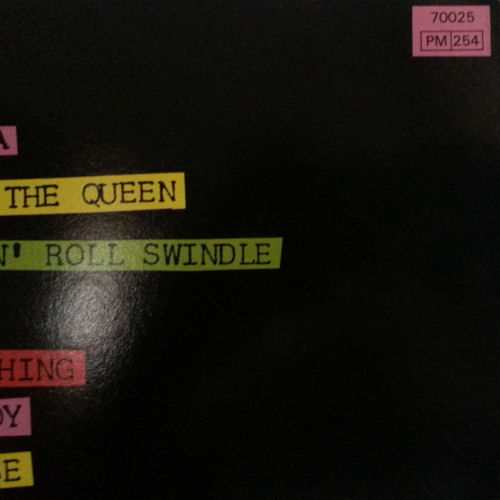 70025
PM 254
A
THE QUEEN
N' ROLL SWINDLE
HING
DY
E